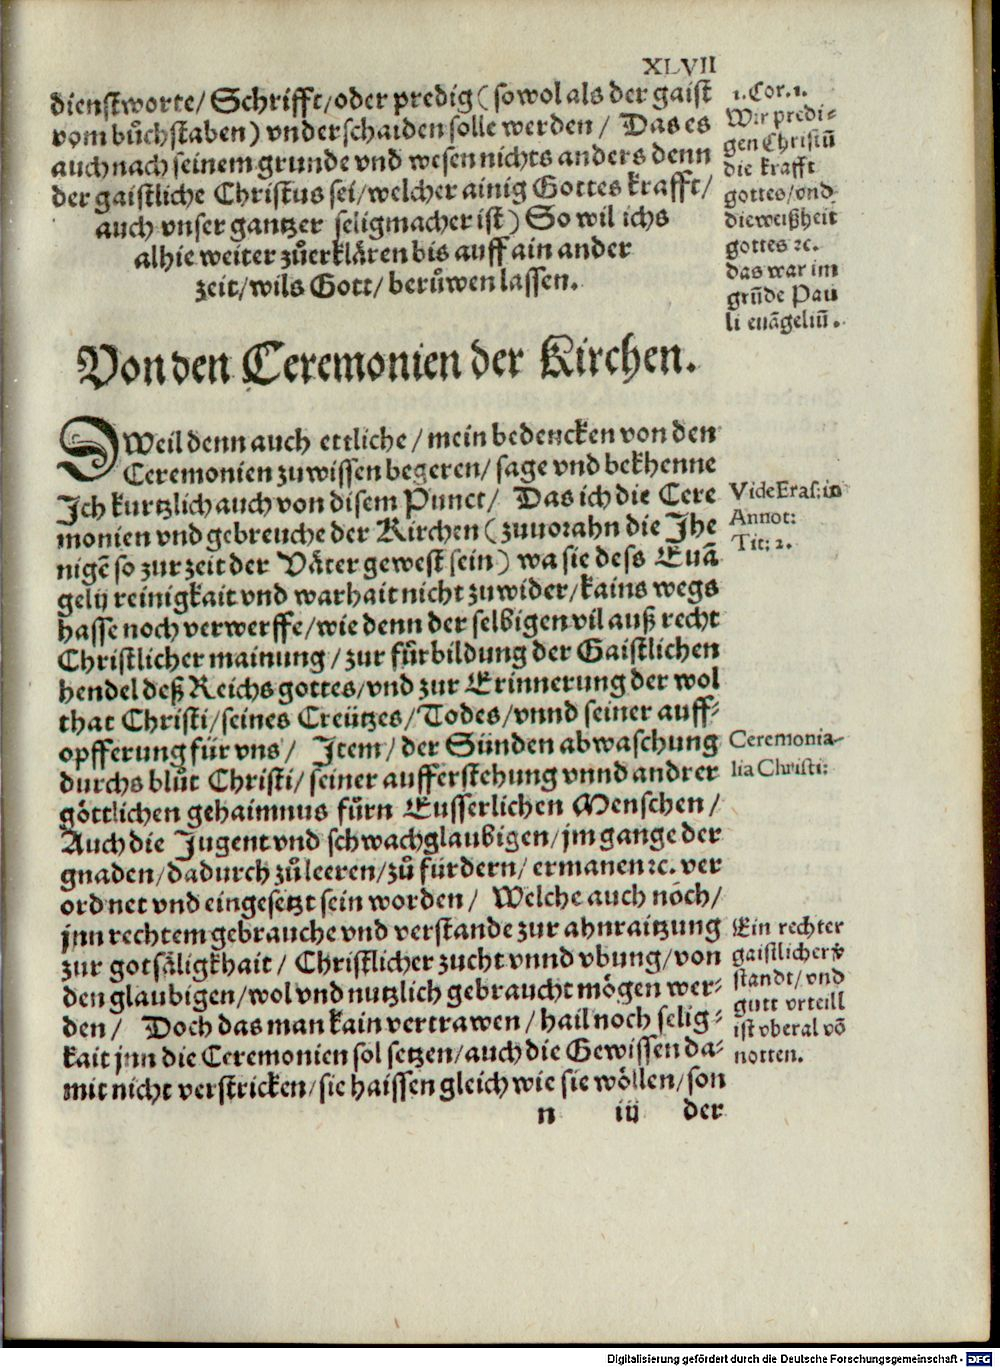 XLVII
dienstworte/ Schrifft/oder predig (sowol als der gaist
vom bůchstaben) vnderschaiden solle werden/ Das es
auch nach seinem grunde vnd wesen nichts anders denn
der gaistliche Christus sei/welcher ainig Gottes krafft/
auch vnser gantzer seligmacher ist) So wil ichs
alhie weiter zůerklären bis auff ain ander
zeit/wils Gott/ berůwen lassen.
1. Cor. 1.
Wir predi-
gen Christū
die krafft
gottes/vnd
die weißheit
gottes ꝛc.
das war im
grūde Pau
li euāgeliū.
Von den Ceremonien der Kirchen.
DWeil denn auch ettliche/ mein bedencken von den
Ceremonien zuwissen begeren/ sage vnd bekhenne
Ich kurtzlich auch von disem Punct/ Das ich die Cere
monien vnd gebreuche der Kirchen (zuuorahn die Ihe
nigē so zur zeit der Väter gewest sein) wa sie dess Euā
gelij reinigkait vnd warhait nicht zuwider/kains wegs
hasse noch verwerffe/wie denn der selbigen vil auß recht
Christlicher mainung/ zur fůrbildung der Gaistlichen
hendel deß Reichs gottes/vnd zur Erinnerung der wol
that Christi/seines Creützes/Todes/vnnd seiner auff-
opfferung für vns/ Item/ der Sünden abwaschung
durchs blůt Christi/ seiner aufferstehung vnnd andrer
göttlichen gehaimnus fůrn Eusserlichen Menschen/
Auch die Jugent vnd schwachglaubigen/jm gange der
gnaden/dadurch zůleeren/zů fürdern/ ermanen ꝛc. ver
ordnet vnd eingesetzt sein worden/ Welche auch noch/
jnn rechtem gebrauche vnd verstande zur ahnraitzung
zur gotsäligkhait/ Christlicher zucht vnnd vbung/von
den glaubigen/wol vnd nutzlich gebraucht mögen wer-
den/ Doch das man kain vertrawen/hail noch selig-
kait jnn die Ceremonien sol setzen/auch die Gewissen da-
mit nicht verstricken/sie haissen gleich wie sie wöllen/son
Vide Eras: in
Annot:
Tit: 2.
Ceremonia-
lia Christi:
Ein rechter
gaistlicher v̄
standt/vnd
gutt vrteill
ist vberal vō
notten.
n iij der
Digitalisierung gefördert durch die Deutsche Forschungsgemeinschaft - DFG